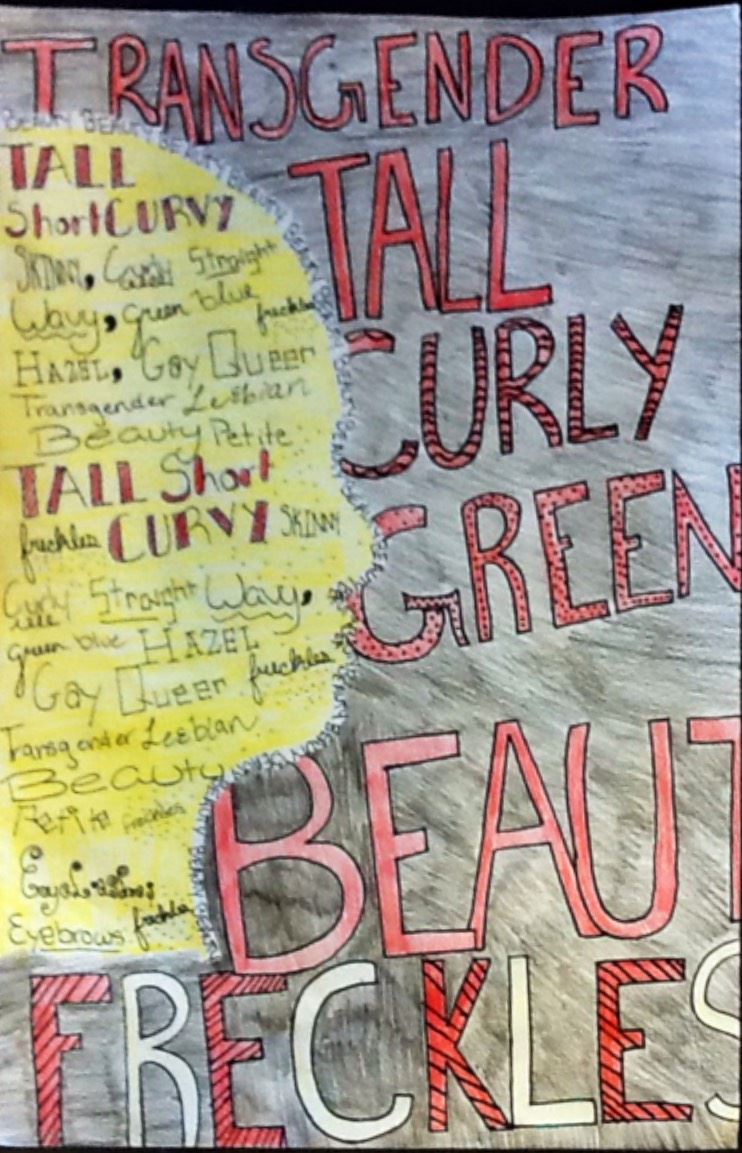 TRANSGENDER
BEAUTY BEAUTY BEAUTY BEAUTY BEAUTY
TALL
TALL
Short CURVY
SKINNY, Curly Straight
Wavy, green blue freckles
HAZEL, Gay Queer
Transgender Lesbian
Beauty Petite
CURLY
TALL Short
freckles CURVY SKINNY
GREEN
Curly Straight Wavy,
green blue HAZEL
Gay Queer freckles
Transgender Lesbian
Beauty
BEAUT
Petite freckles
Eyebrows freckles
FRECKLES